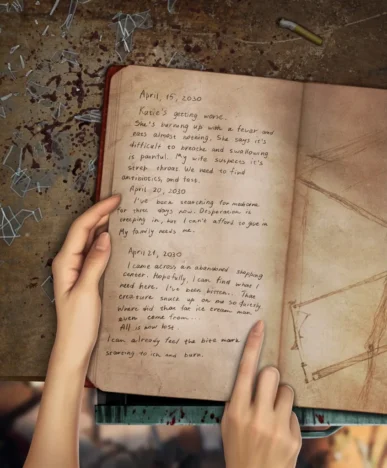 April, 15, 2030
Katie's getting worse.
She's burning up with a fever and
eats almost nothing. She says it's
difficult to breathe and swallowing
is painful. My wife suspects it's
strep throat. We need to find
antibiotics, and fast.
April 20, 2030
I've been searching for medicine
for three days now. Desperation is
creeping in, but I can't afford to give in
My family needs me.
April 21, 2030
I came across an abandoned shopping
center. Hopefully, I can find what I
need here. I've been bitten. That
creature snuck up on me so quickly
Where did that fat ice cream man
even come from...
All is now lost.
I can already feel the bite mark
starting to itch and burn.